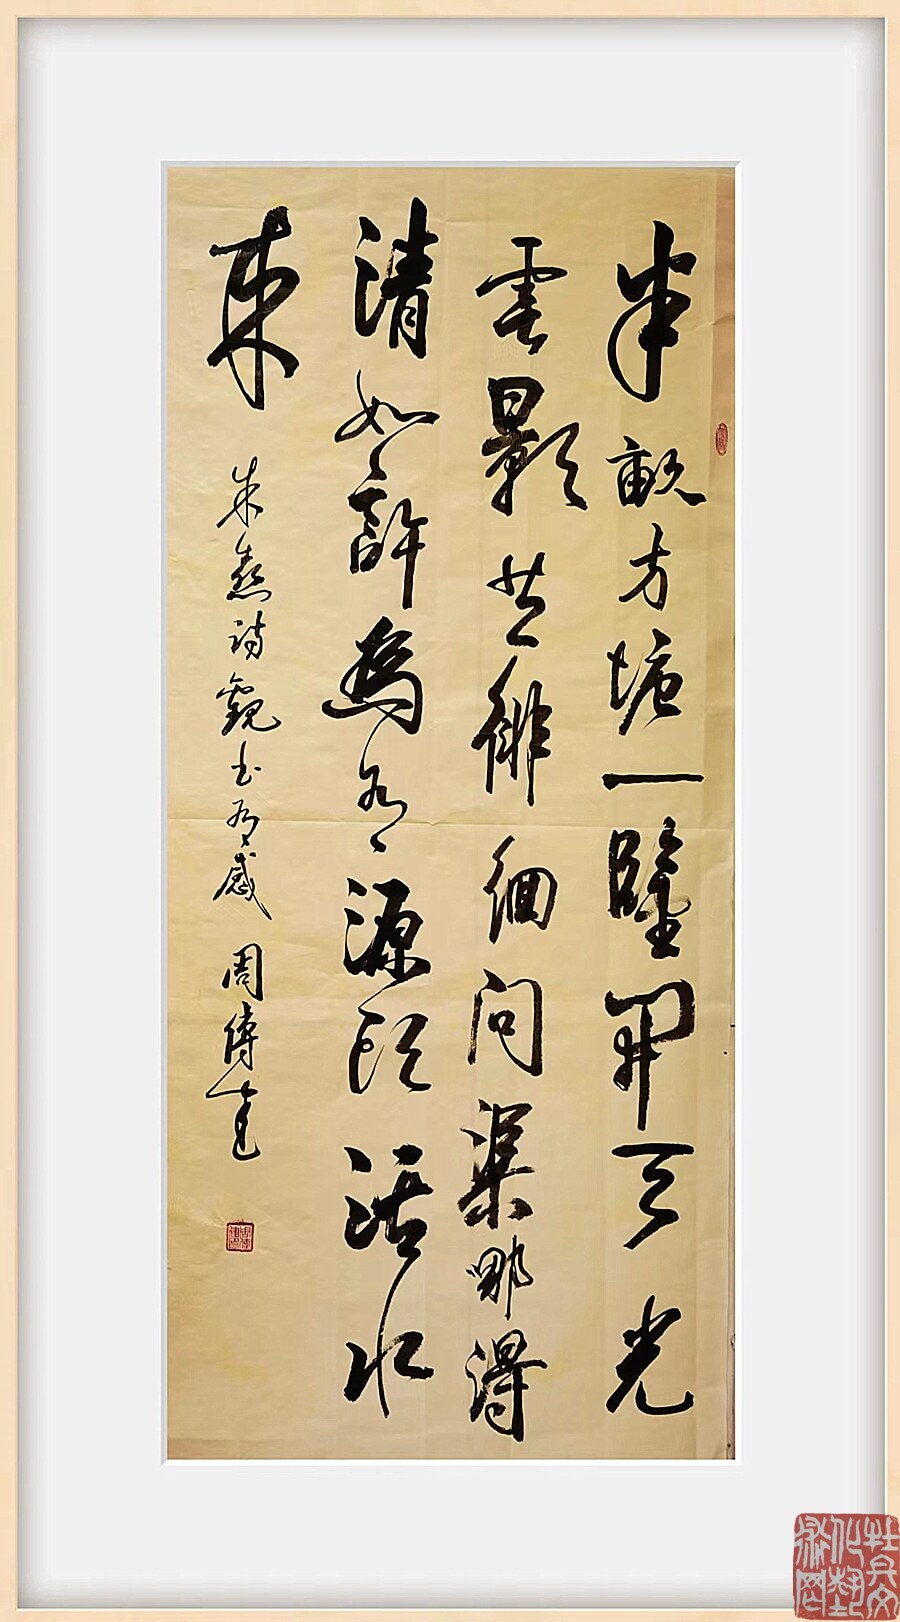 半畝方塘一鑒開天光
雲影共徘徊問渠哪得
清如許為有源頭活水
來
朱熹詩觀書有感 周傳達